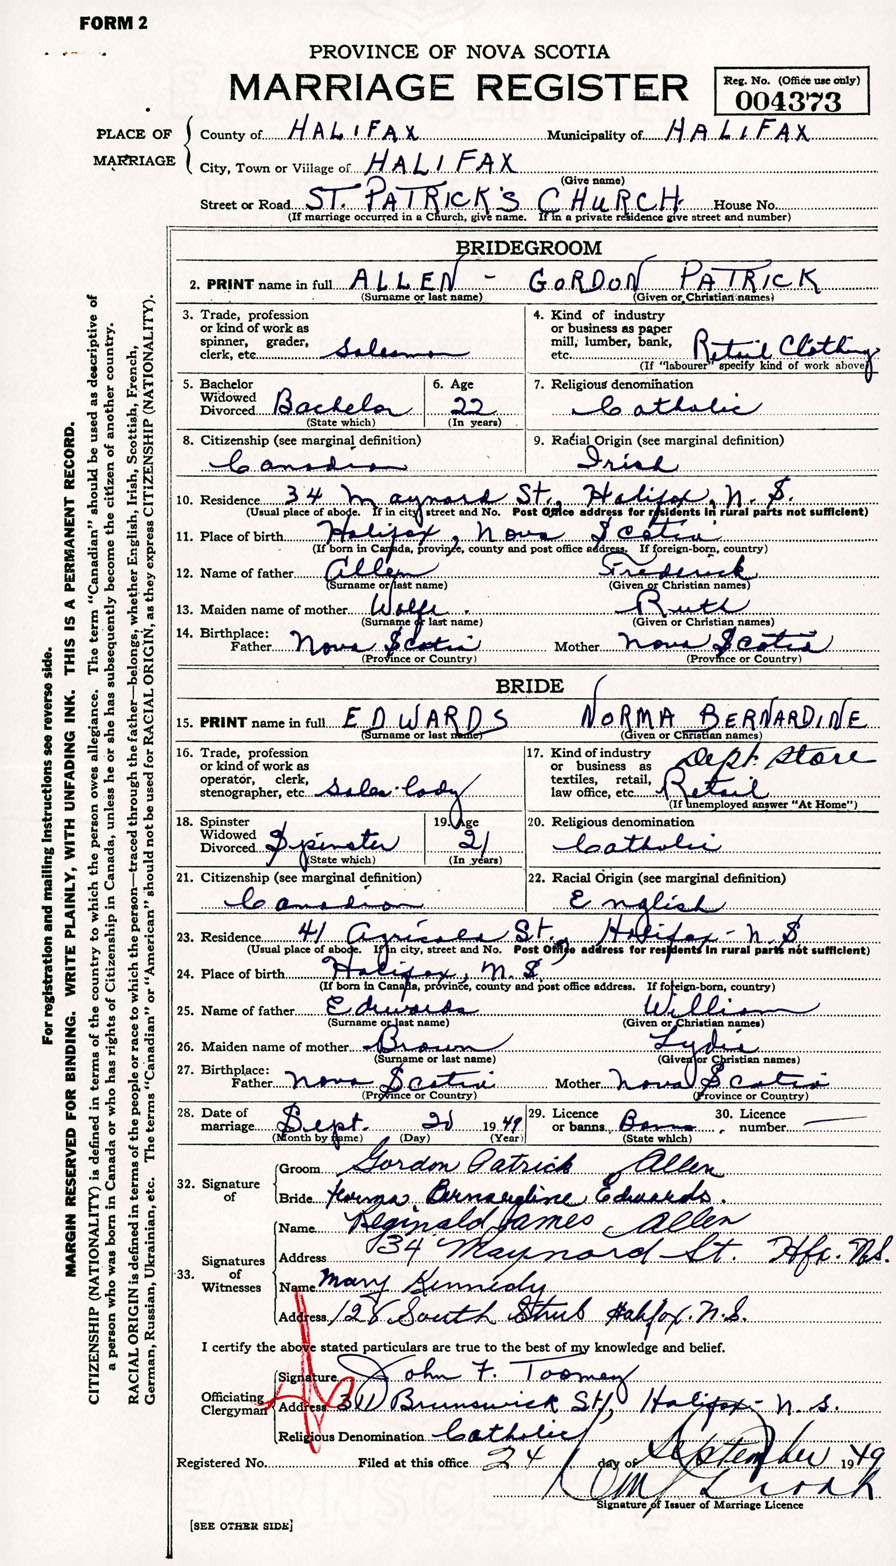 FORM 2
PROVINCE OF NOVA SCOTIA
MARRIAGE REGISTER
Reg. No. (Office use only)
004373
PLACE OF MARRIAGE
County of HALIFAX Municipality of HALIFAX
City, Town or Village of HALIFAX
(Give name)
Street or Road ST. PATRICK'S CHURCH House No.
(If marriage occurred in a Church, give name. If in a private residence give street and number)
BRIDEGROOM
2. PRINT name in full ALLEN - GORDON PATRICK
(Surname or last name) (Given or Christian names)
3. Trade, profession or kind of work as spinner, grader, clerk, etc. Salesman
4. Kind of industry or business as paper mill, lumber, bank, etc. Retail Clothing
(If "labourer" specify kind of work above)
5. Bachelor Widowed Divorced Bachelor
(State which)
6. Age 22
(In years)
7. Religious denomination
Catholic
8. Citizenship (see marginal definition)
Canadian
9. Racial Origin (see marginal definition)
Irish
10. Residence 34 Maynard St., Halifax, N.S.
(Usual place of abode. If in city street and No. Post Office address for residents in rural parts not sufficient)
11. Place of birth Halifax, Nova Scotia
(If born in Canada, province, county and post office address. If foreign-born, country)
12. Name of father Allen Frederick
(Surname or last name) (Given or Christian names)
13. Maiden name of mother Wolfe Ruth
(Surname or last name) (Given or Christian names)
14. Birthplace:
Father Nova Scotia Mother Nova Scotia
(Province or Country) (Province or Country)
BRIDE
15. PRINT name in full EDWARDS NORMA BERNARDINE
(Surname or last name) (Given or Christian names)
16. Trade, profession or kind of work as operator, clerk, stenographer, etc. Sales-lady
17. Kind of industry or business as textiles, retail, law office, etc. Dept. Store Retail
(If unemployed answer "At Home")
18. Spinster Widowed Divorced Spinster
(State which)
19. Age 21
(In years)
20. Religious denomination
Catholic
21. Citizenship (see marginal definition)
Canadian
22. Racial Origin (see marginal definition)
English
23. Residence 41 Agricola St., Halifax - N.S
(Usual place of abode. If in city, street and No. Post Office address for residents in rural parts not sufficient)
24. Place of birth Halifax, N.S.
(If born in Canada, province, county and post office address. If foreign-born, country)
25. Name of father Edwards William
(Surname or last name) (Given or Christian names)
26. Maiden name of mother Brown Lydia
(Surname or last name) (Given or Christian names)
27. Birthplace:
Father Nova Scotia Mother Nova Scotia
(Province or Country) (Province or Country)
28. Date of marriage Sept. 1949
(Month by name) (Day) (Year)
29. Licence or banns Banns
(State which)
30. Licence number
32. Signature of
Groom Gordon Patrick Allen
Bride Norma Bernardine Edwards.
33. Signatures of Witnesses
Name Reginald James Allen
Address 34 Maynard St. Hfx. N.S.
Name Mary Kennedy
Address 128 South Street Halifax. N.S.
I certify the above stated particulars are true to the best of my knowledge and belief.
Officiating Clergyman
Signature John F. Toomey
Address 311 Brunswick St, Halifax - N.S.
Religious Denomination Catholic
Registered No. Filed at this office 24 day of September 1949
Signature of Issuer of Marriage Licence
[SEE OTHER SIDE]
For registration and mailing instructions see reverse side.
MARGIN RESERVED FOR BINDING. WRITE PLAINLY, WITH UNFADING INK. THIS IS A PERMANENT RECORD.
CITIZENSHIP (NATIONALITY) is defined in terms of the country to which the person owes allegiance. The term "Canadian" should be used as descriptive of
a person who was born in Canada or who has rights of Citizenship in Canada, unless he or she has subsequently become the citizen of another country.
RACIAL ORIGIN is defined in terms of the people or race to which the person—traced through the father—belongs, whether English, Irish, Scottish, French,
German, Russian, Ukrainian, etc. The terms "Canadian" or "American" should not be used for RACIAL ORIGIN, as they express CITIZENSHIP (NATIONALITY).